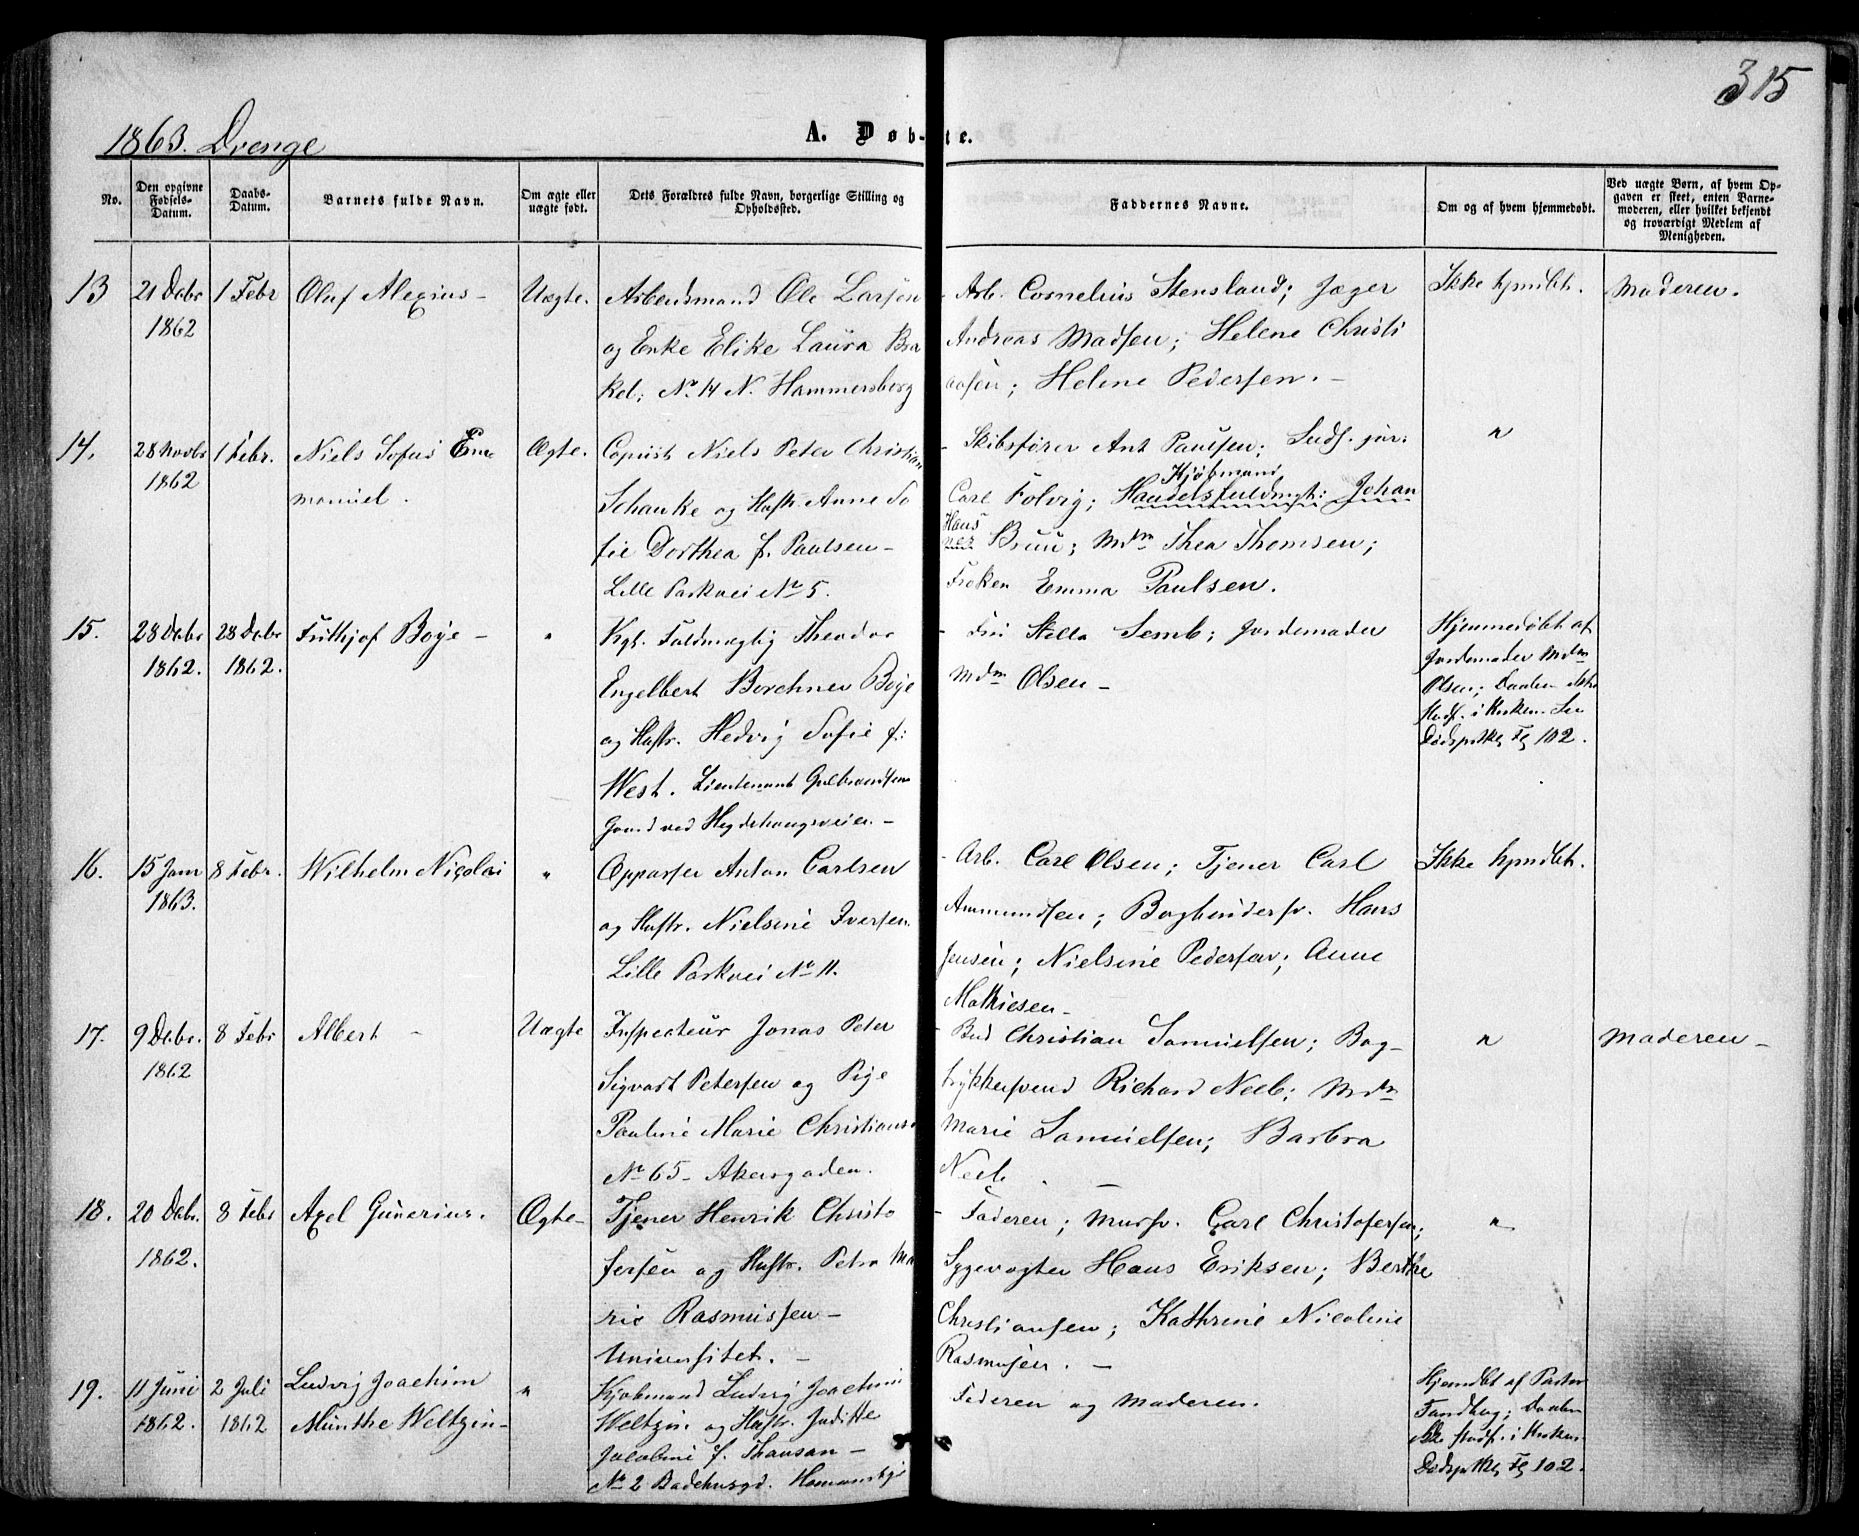 315
1863. Drenge
A. Døb-te.
No.
Den opgivne
Fødsels-
Datum.
Daabs-
Datum.
Barnets fulde Navn.
Om ægte eller
uægte født.
Dets Forældres fulde Navn, borgerlige Stilling og
Opholdssted.
Faddernes Navne.
Om og af hvem hjemmedøbt.
Ved uægte Børn, af hvem Op-
gaven er skeet, enten Barne-
moderen, eller hvilket bekjendt
og troværdigt Medlem af
Menigheden.
13
21 Debr
1862
1 Febr
Oluf Alexius -
Uægte.
Arbeidsmand Ole Larsen
og Enke Elike Laura Bra
kel, No. 14 N. Hammersborg
- Arb. Cornelius Stensland; Jæger
Andreas Madsen; Helene Christi
ansen; Helene Pedersen. -
Ikke hjmdbt.
Moderen.
14.
28 Novbr
1862
1 Febr.
Niels Sofus Em
manuel.
Ægte.
Copiist Niels Peter Christian
Schanke og Hustr. Anne So
fie Dorthea f. Paulsen -
Lille Parkvei No 5.
- Skibsfører Ant Paulsen; Studs. jur.
Kjøbmand
Carl Folvig; Handelsfuldmgt: Johan
Hans
nes Bruu; Mdm Thea Thomsen;
Frøken Emma Paulsen.
"
15.
28 Debr
1862.
28 Debr
1862.
Frithjof Boye -
"
Kgl. Fuldmægtig Theodor
Engelbert Borchner Boye
og Hustr. Hedvig Sofie f:
West. Lieutenant Gulbrandsens
Gaard ved Hegdehaugsveien. -
- Frü Stella Semb; Jordemoder
Mdm Olsen -
Hjemmedøbt af
Jordemoder Mdm
Olsen; Daaben ikke
stadf. i Kirken. Se
Dødsprotkl, Fg 102.
16.
15 Janr
1863.
8 Febr.
Wilhelm Nicolai
"
Oppasser Anton Carlsen
og Hustr. Nielsine Iversen.
Lille Parkvei No 11.
- Arb. Carl Olsen; Tjener Carl
Ammundsen; Bogbindersv. Hans
Jensen; Nielsine Pedersen; Anne
Mathiesen -
Ikke hjmdbt.
17.
9 Debr.
1862
8 Febr
Albert -
Uægte
Inspecteur Jonas Peter
Sigvart Petersen og Pige
Pauline Marie Christians.
No 65 - Akersgaden.
- Bud Christian Samuelsen; Bog-
trykkersvend Richard Neeb; Mdm
Marie Samuelsen; Barbra
Neeb. -
"
Moderen -
18.
20 Debr.
1862.
8 Febr
Axel Gunerius.
Ægte -
Tjener Henrik Christo
fersen og Hustr. Petra Ma
rie Rasmussen -
Universitet. -
- Faderen; Mursv. Carl Christofersen;
Sygevogter Hans Eriksen; Berthe
Christiansen; Kathrine Nicoline
Rasmusen. -
"
19.
11 Juni
1862.
2 Juli
1862
Ludvig Joachim
Münthe Weltzin -
"
Kjøbmand Ludvig Joachim
Weltzin og Hustr. Juditte
Jacobine f. Thausan -
No 2 Badehusgd. Homansby
Faderen og Moderen.
Hjemdbt af Pastor
Tandberg; Daaben
ikke stadf. i Kirken.
Dødsprotkl, Fg 102.